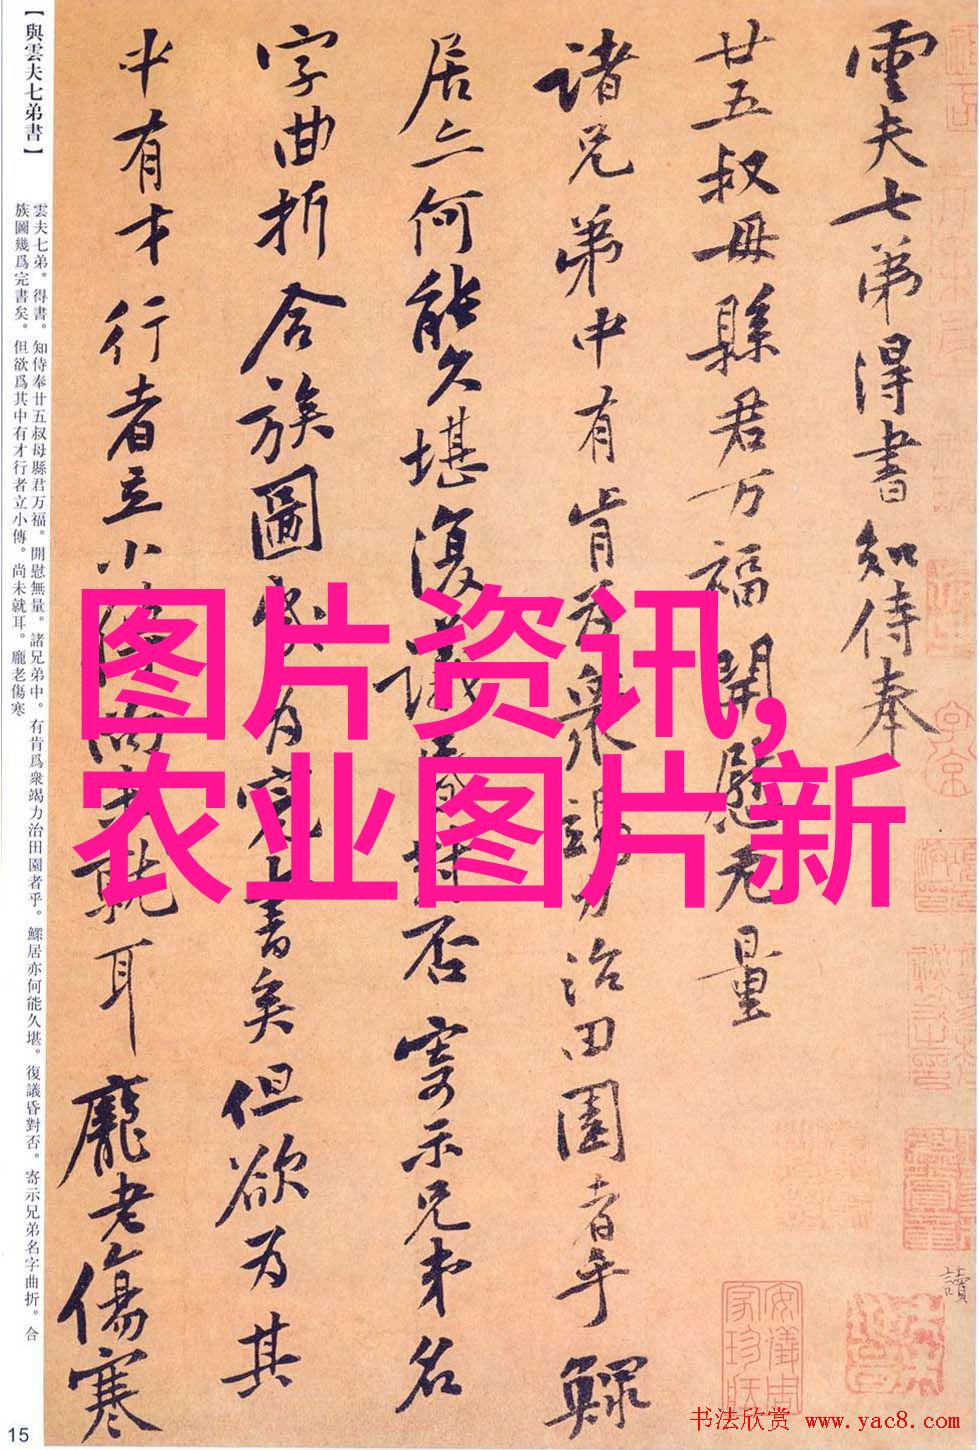 【與雲夫七弟書】
雲夫七弟。得書。知侍奉廿五叔母縣君万福。開慰無量。諸兄弟中。有肯爲衆竭力治田園者乎。鰥居亦何能久堪。復議昏對否。寄示兄弟名字曲折。合
族圖幾爲完書矣。但欲爲其中有才行者立小傳。尚未就耳。龐老傷寒
雲夫七弟得書知侍奉
廿五叔母縣君万福開慰无量
諸兄弟中有肯为衆竭力治田園者乎鰥
居亦何能久堪復議昏對否寄示兄弟名
字曲折合族圖幾为完書矣但欲为其
中有才行者立小傳尚未就耳龐老傷寒
图片资讯,
农业图片新
讀
安儀周家珍藏
15
书法欣赏 www.yac8.com